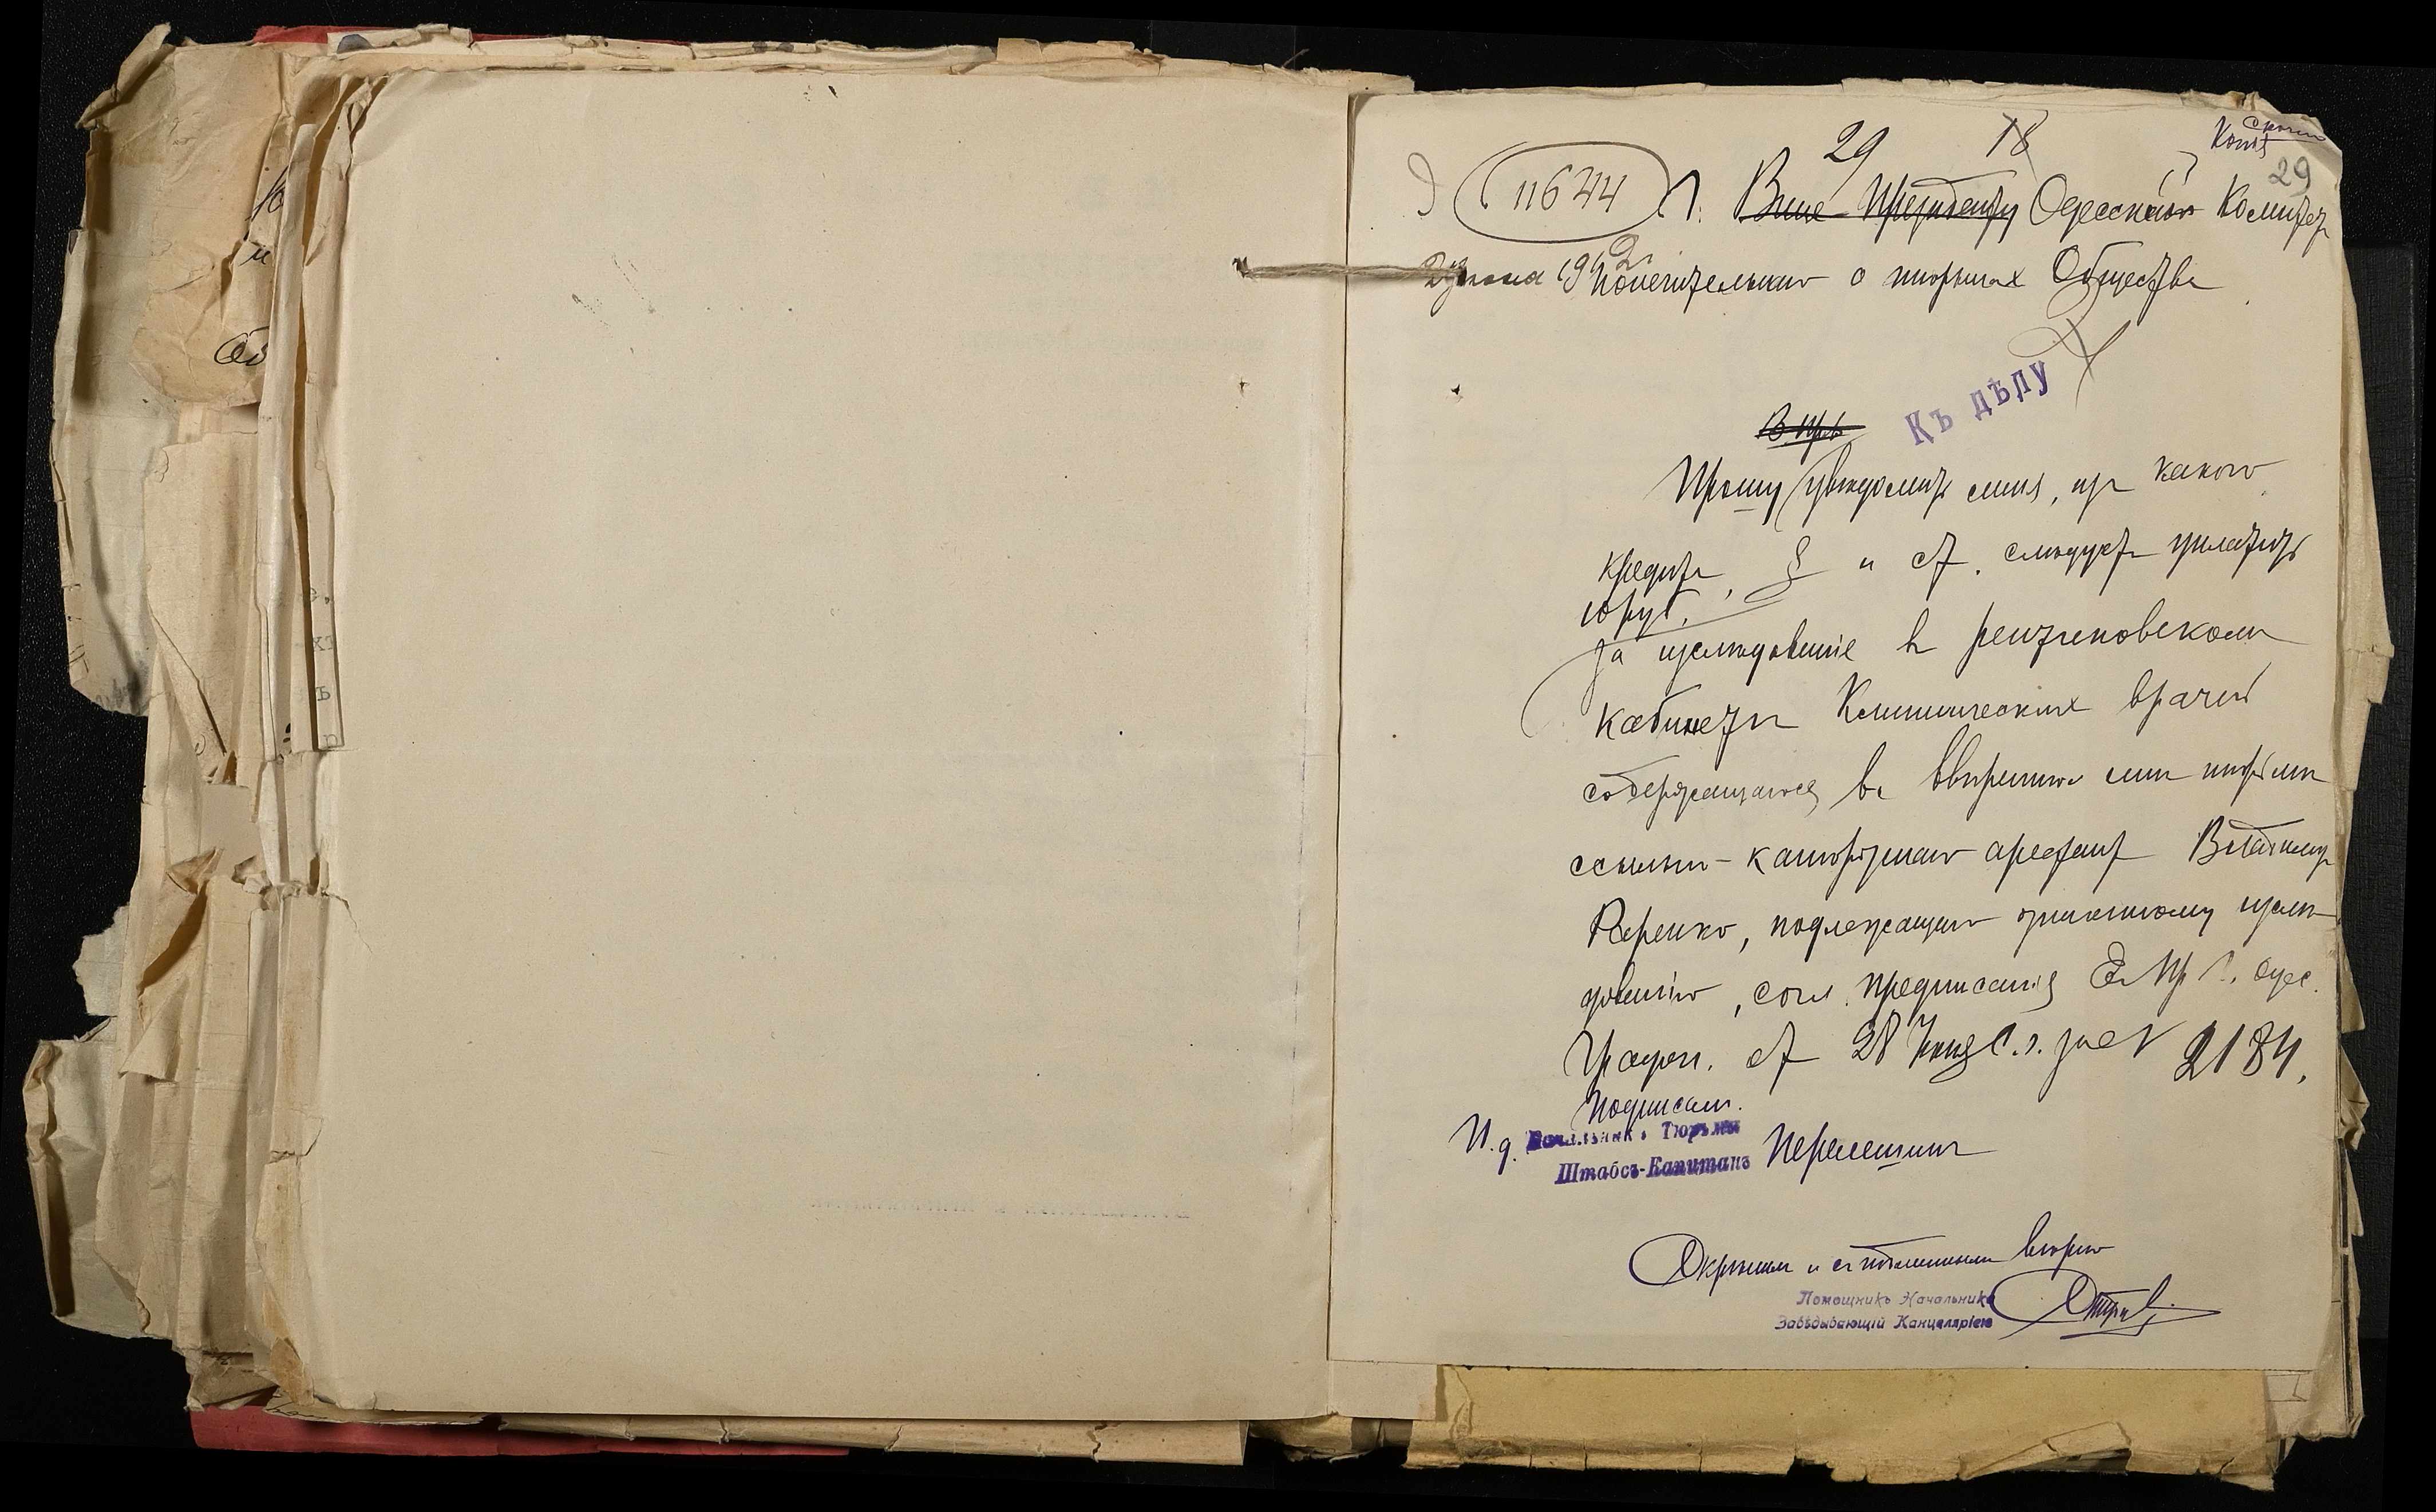 Копія
Срочно
29
18
29
11644
Г. Вице-Президенту Одесскаго Комитета
1912
Попечительнаго о тюрьмах Общества
Къ дѣлу
Прошу увѣдомить меня, из какого
кредита, § и ст. слѣдуетъ уплатить
10 руб.
за изслѣдованіе в рентгеновском
кабинетѣ Клинических врачей
содержащагося во ввѣренной мнѣ тюрьмѣ
ссыльно-каторжнаго арестанта Владимира
подлежащаго изслѣ-
дованію, согл. предписанія Е. Пр. Г. Одес.
Градон. от 28 Іюня с. г. за № 2184.
Подписал.
И. д. Начальникъ Тюрьмы
Штабсъ-Капитанъ Перелешин
Скрѣпил и с подлинным вѣрно
Помощникъ Начальника
Завѣдывающій Канцеляріею